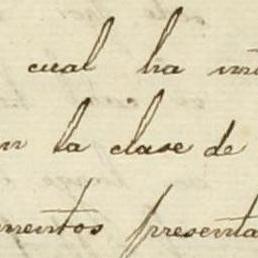 cual ha
la clase de
mentos presenta